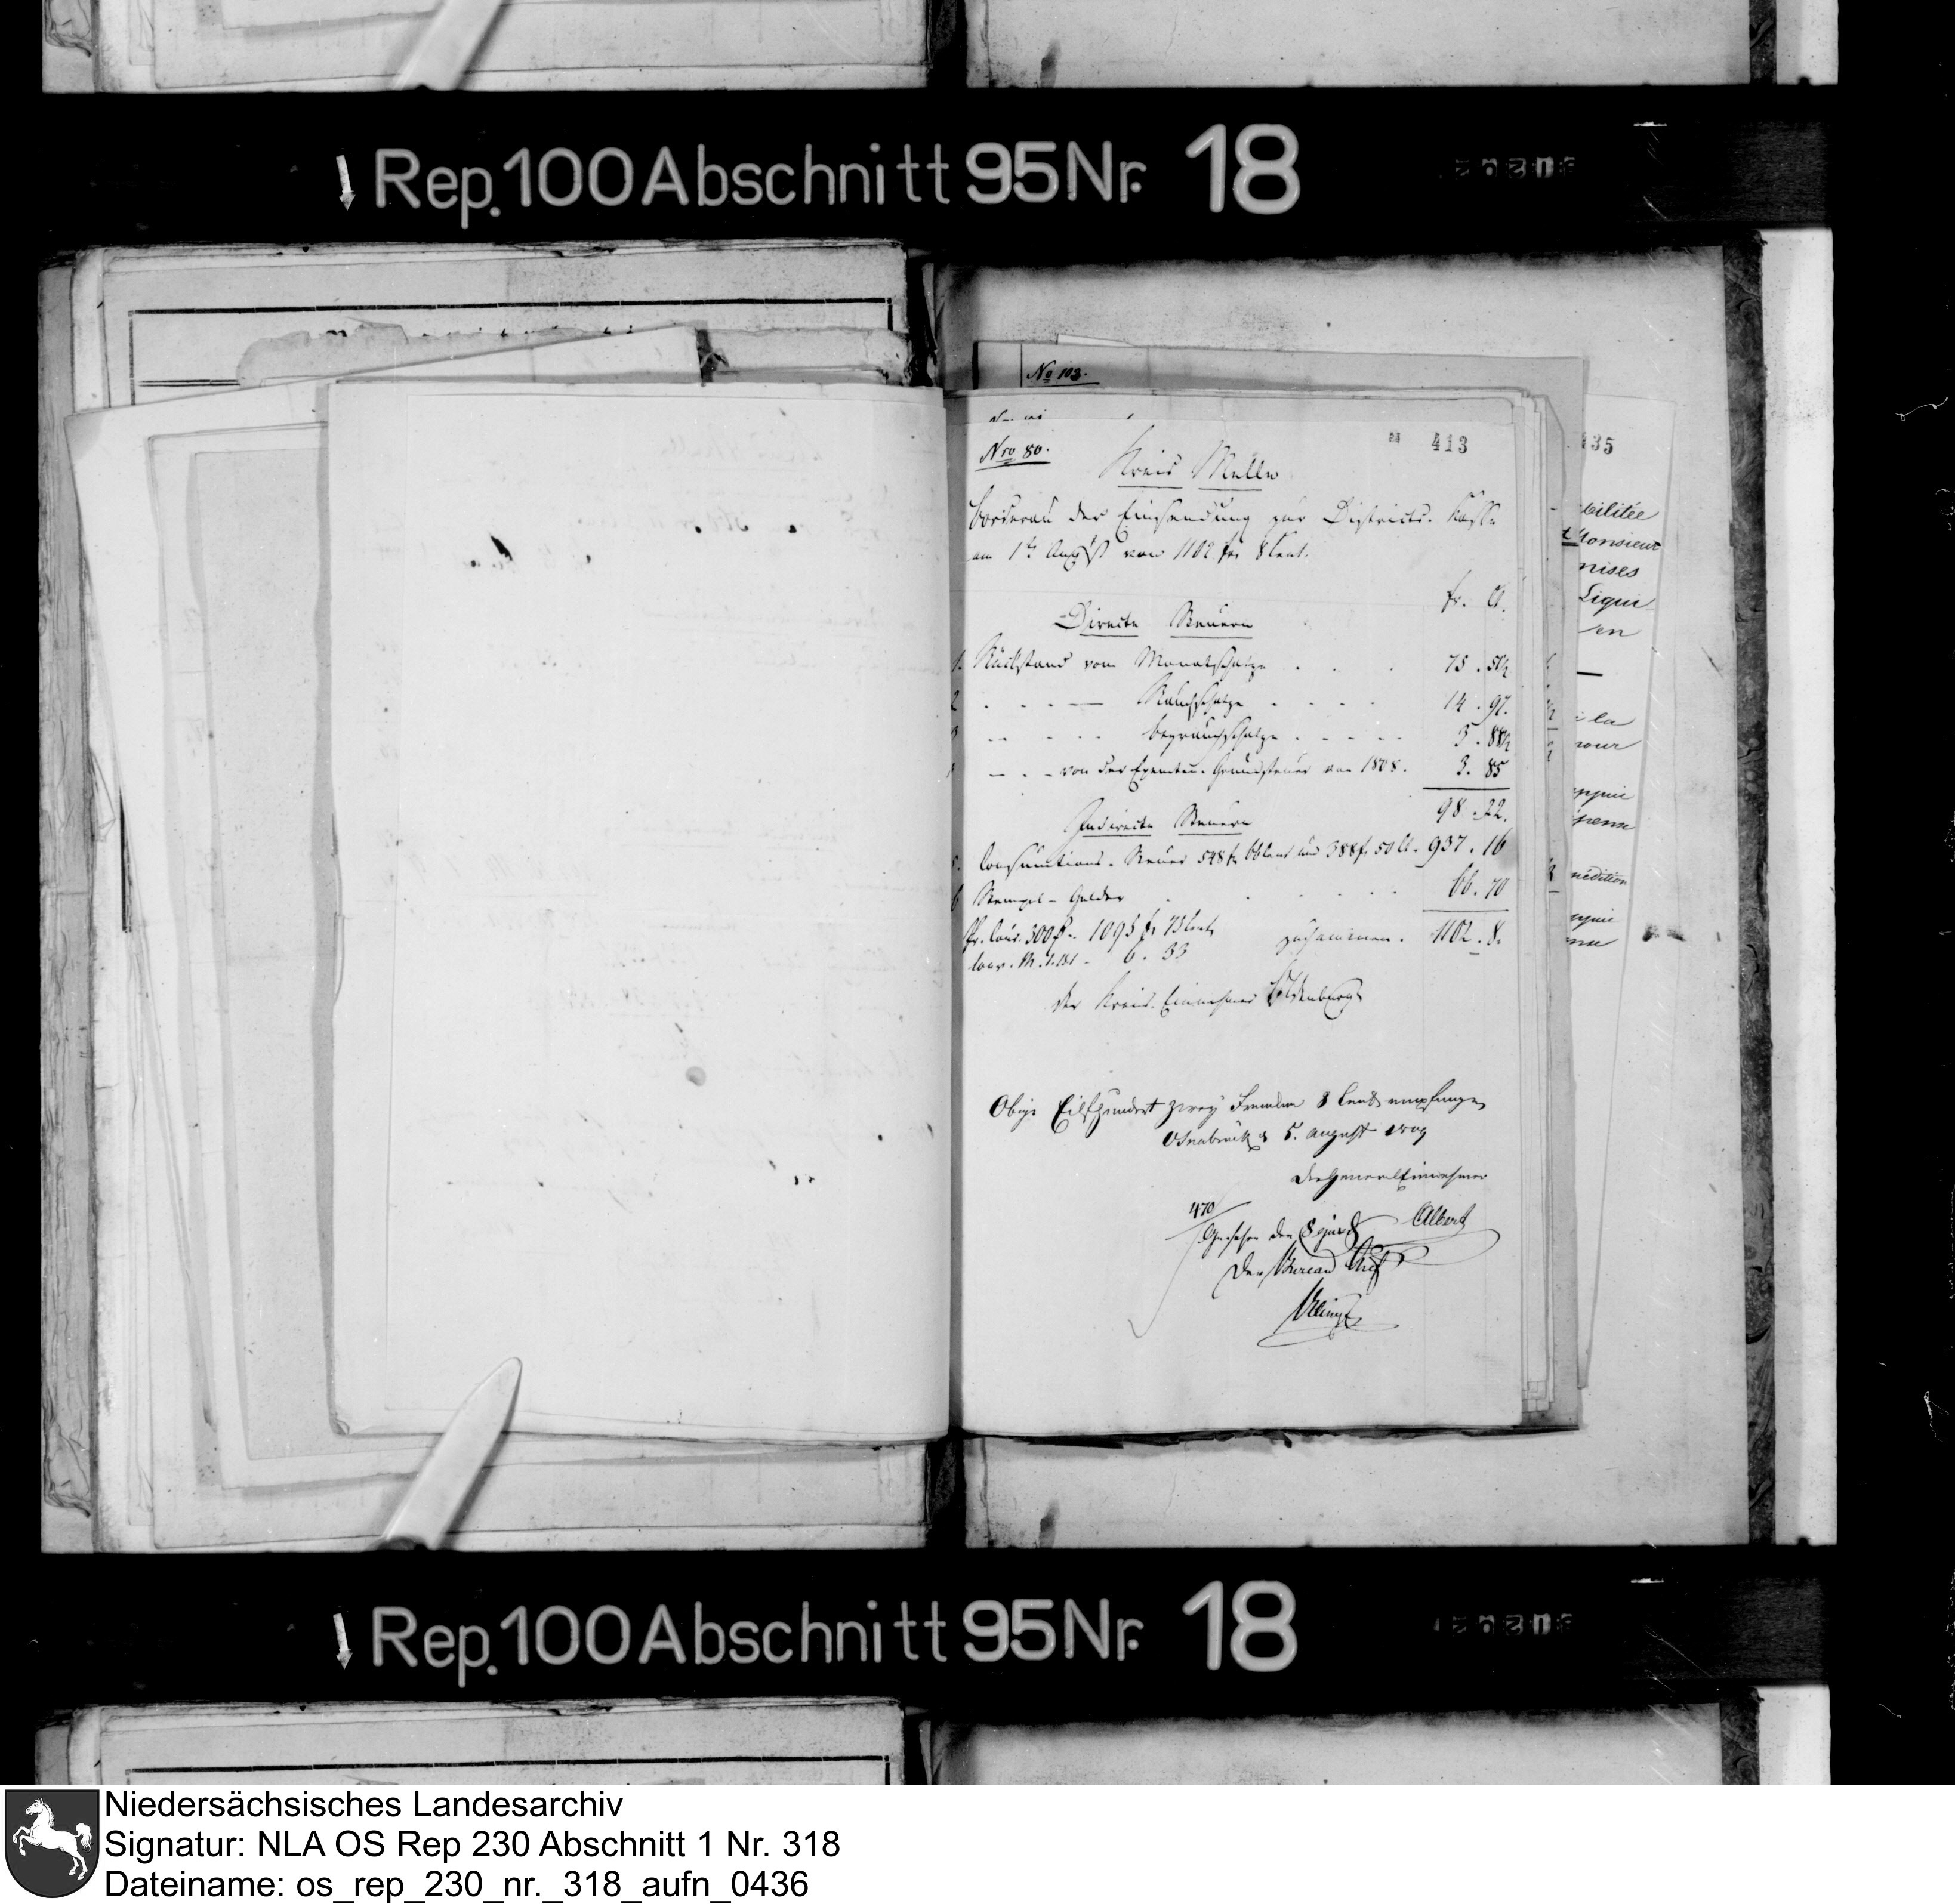 Rep. 100 Abschnitt 95 Nr. 18
No 103.
413
135
Nro 80.
Kreis Melle
Borderau der Einsendung zur Districts-Kasse
am 1ten August von 1102 frs 8 Cent.
fr. Ct.
Directe Steuern
1. Rückstand vom Monatschatze . . . 75 . 51½
2 . . . — Rauchschatze . . . . 14 . 97.
3 . . . . . . . . . . 5 . 88½
- . - von der Exemten-Grundsteuer von 1808. 3. 85
98 . 22.
Indirecte Steuern
5. Consumtions-Steuer 548 fr 66 Cent und 388 fr 50 Ct. 937 . 16
6 Stempel-Gelder . . . . . 66 . 70
1095 fr 75 Cent zusammen . 1102 . 8.
6 . 33
der Kreis-Einnehmer
Obige Eilfhundert zwey Franken 8 Cent empfangen
Osnabrück d 5. August 1809
Der General Einnehmer
Albert
470
Gesehen den
Der Bureau Chef
bilitée
Monsieur
mises
Liqui
en
à la
pour
appuie
pense
nédition
Rep. 100 Abschnitt 95 Nr. 18
Niedersächsisches Landesarchiv
Signatur: NLA OS Rep 230 Abschnitt 1 Nr. 318
Dateiname: os_rep_230_nr._318_aufn_0436